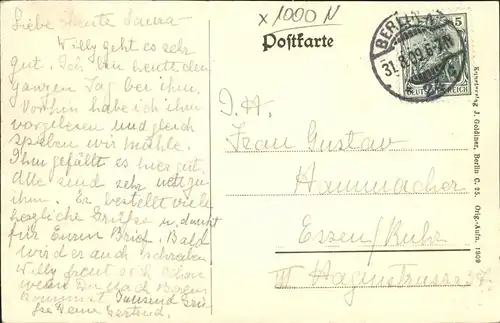 Liebe Tante Laura
Willy geht es sehr
gut. Ich bin heute den
ganzen Tag bei ihm.
Vorhin habe ich ihm
vorgelesen und gleich
spielen wir Mühle.
Ihm gefällt es hier gut.
Alle sind sehr nett zu
ihm. Er bestellt viele
herzliche Grüße u. dankt
für Euren Brief. Bald
wird es auch schreiben
Willy freut sich schon
wenn Du nach Berlin
kommst. Tausend Grü-
ße Deine Gertrud.
x 1000 N
Postkarte
BERLIN
31.8.09.6-7N
5
DEUTSCHES REICH
I. H.
Frau Gustav
Hammacher
Essen/Ruhr
III Hagenstrasse 37.
Kunstverlag J. Goldiner, Berlin C. 25. Orig.-Aufn. 1909